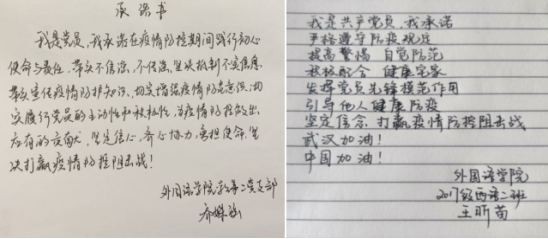 承诺书
我是党员，我承诺在疫情防控期间践行初心
使命与责任，带头不信谣、不传谣，坚决抵制不实信息，
带头宣传疫情防护知识，切实增强疫情防范意识，切
实履行党员的主动性和积极性，为疫情防控做出
应有的贡献，坚定信心，齐心协力，勇担使命，坚
决打赢疫情防控阻击战！
外国语学院
支部
我是共产党员，我承诺
严格遵守防疫规定
提高警惕 自觉防范
积极配合 健康宅家
发挥党员先锋模范作用
引导他人健康防疫
坚定信念，打赢疫情防控阻击战
武汉加油！
中国加油！
外国语学院
2017级西语二班
王昕苗